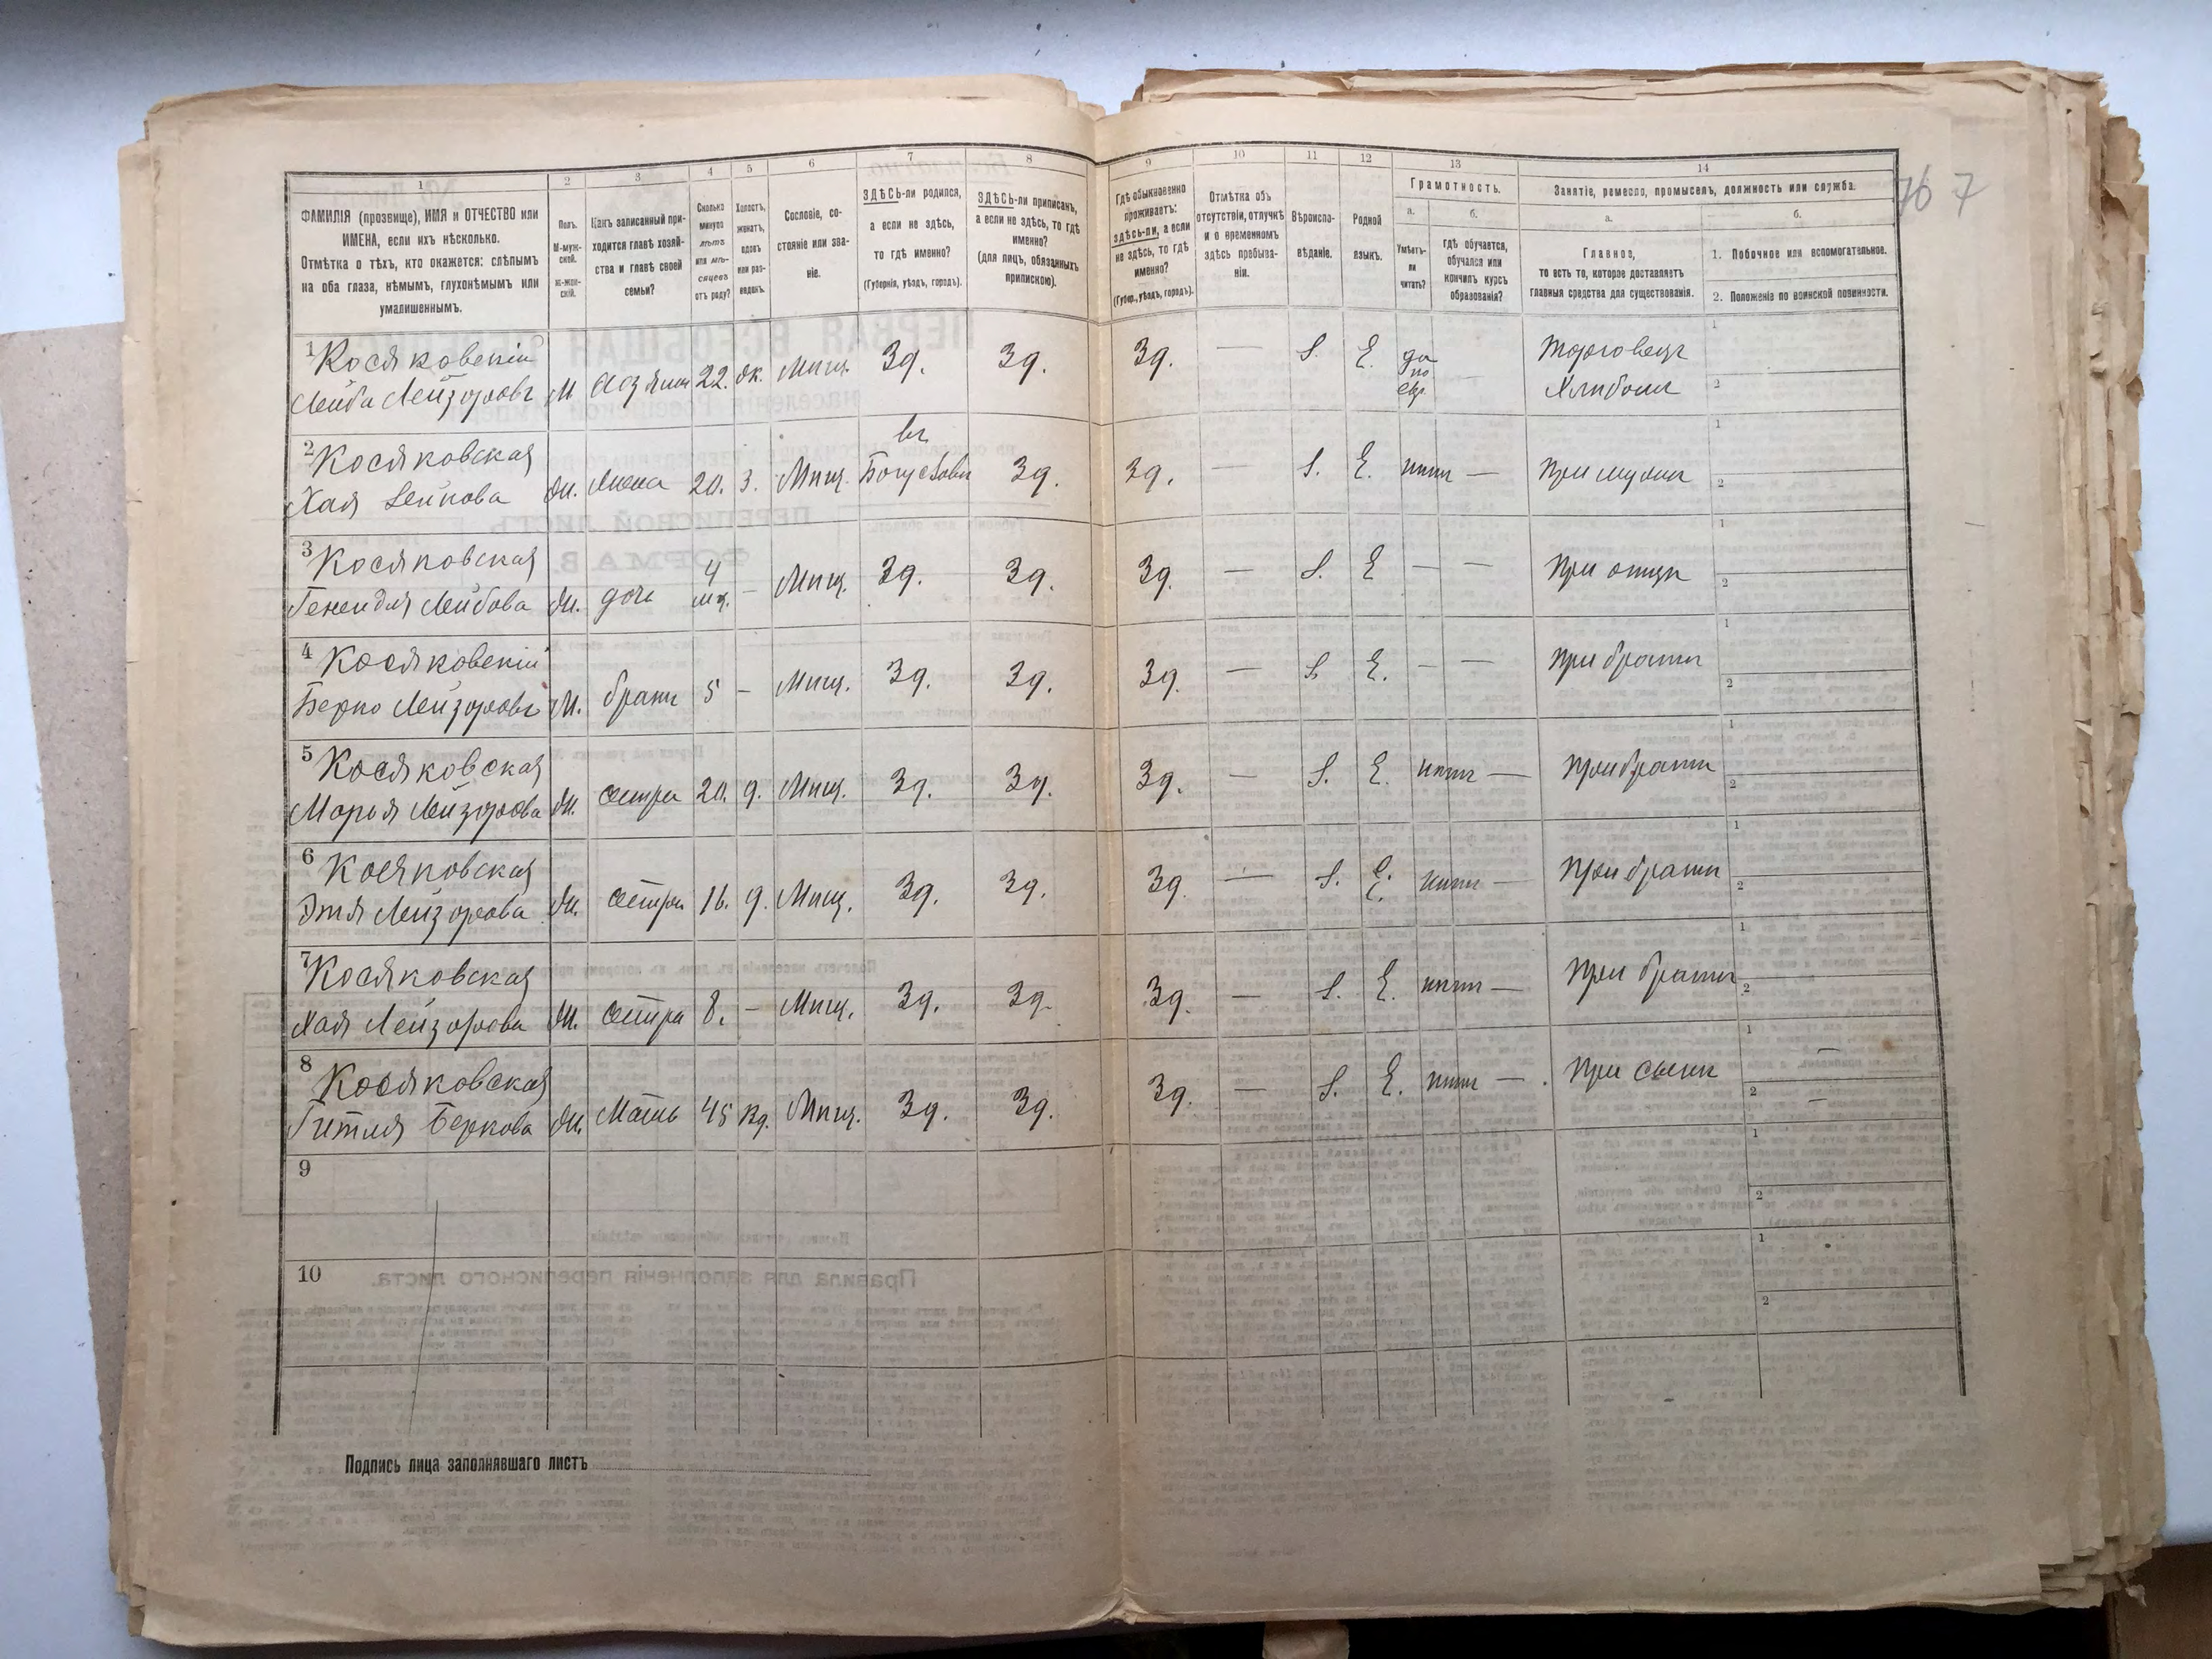 1 2 3 4 5 6 7 8 9 10 11 12 13 14
ФАМИЛІЯ (прозвище), ИМЯ и ОТЧЕСТВО или ИМЕНА, если ихъ нѣсколько.
Отмѣтка о тѣхъ, кто окажется: слѣпымъ на оба глаза, нѣмымъ, глухонѣмымъ или умалишеннымъ.
Полъ. М-мужской. Ж-женскій.
Какъ записанный приходится главѣ хозяйства и главѣ своей семьи?
Сколько минуло лѣтъ или мѣсяцевъ отъ роду?
Холостъ, женатъ, вдовъ или разведенъ.
Сословіе, состояніе или званіе.
ЗДѢСЬ-ли родился, а если не здѣсь, то гдѣ именно?
(Губернія, уѣздъ, городъ).
ЗДѢСЬ-ли приписанъ, а если не здѣсь, то гдѣ именно?
(для лицъ, обязанныхъ припискою).
Гдѣ обыкновенно проживаетъ: здѣсь-ли, а если не здѣсь, то гдѣ именно?
(Губер., уѣздъ, городъ).
Отмѣтка объ отсутствіи, отлучкѣ и о временномъ здѣсь пребываніи.
Вѣроисповѣданіе.
Родной языкъ.
Грамотность.
а. б.
Умѣетъ-ли читать?
гдѣ обучается, обучался или кончилъ курсъ образованія?
Занятіе, ремесло, промыселъ, должность или служба.
а. б.
Главное,
то есть то, которое доставляетъ главныя средства для существованія.
1. Побочное или вспомогательное.
2. Положеніе по воинской повинности.
76 7
1 Косяковскій Зд. Зд. Зд. — І. Е да по евр. — Торговецъ
Лейба Лейзоровъ М хозяинъ 22. ж. Мищ. Хлибомъ
2 Косяковская въ
Хая Ж. Жена 20. З. Мищ. Богуславъ Зд. Зд. — І. Е. нитъ — При мужи
3 Косяковская
Генендля Лейбова Ж. дочь 4 мц. — Мищ. Зд. Зд. Зд. — І. Е — — При отци
4 Косяковскій
Берко Лейзоровъ М. братъ 5 — Мищ. Зд. Зд. Зд. — І. Е. — — При брати
5 Косяковская
Марья Лейзорова Ж. сестра 20. д. Мищ. Зд. Зд. Зд. — І. Е. нитъ — При брати
6 Косяковская
Этя Лейзорова Ж. сестра 16. д. Мищ. Зд. Зд. Зд. — І. Е. нитъ — При брати
7 Косяковская
Хая Лейзорова Ж. сестра 8. — Мищ. Зд. Зд. Зд. — І. Е. нитъ — При брати
8 Косяковская
Гитля Беркова Ж. Мать 45 вд. Мищ. Зд. Зд. Зд. — І. Е. нитъ — При сыни — —
9
10
Подпись лица заполнявшаго листъ